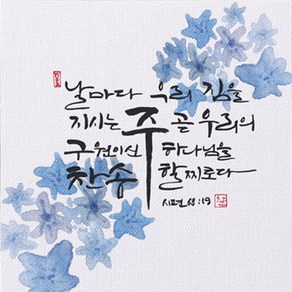 날마다 우리 짐을
지시는 주 곧 우리의
구원이신 하나님을
찬송 할찌로다
시편 68:19